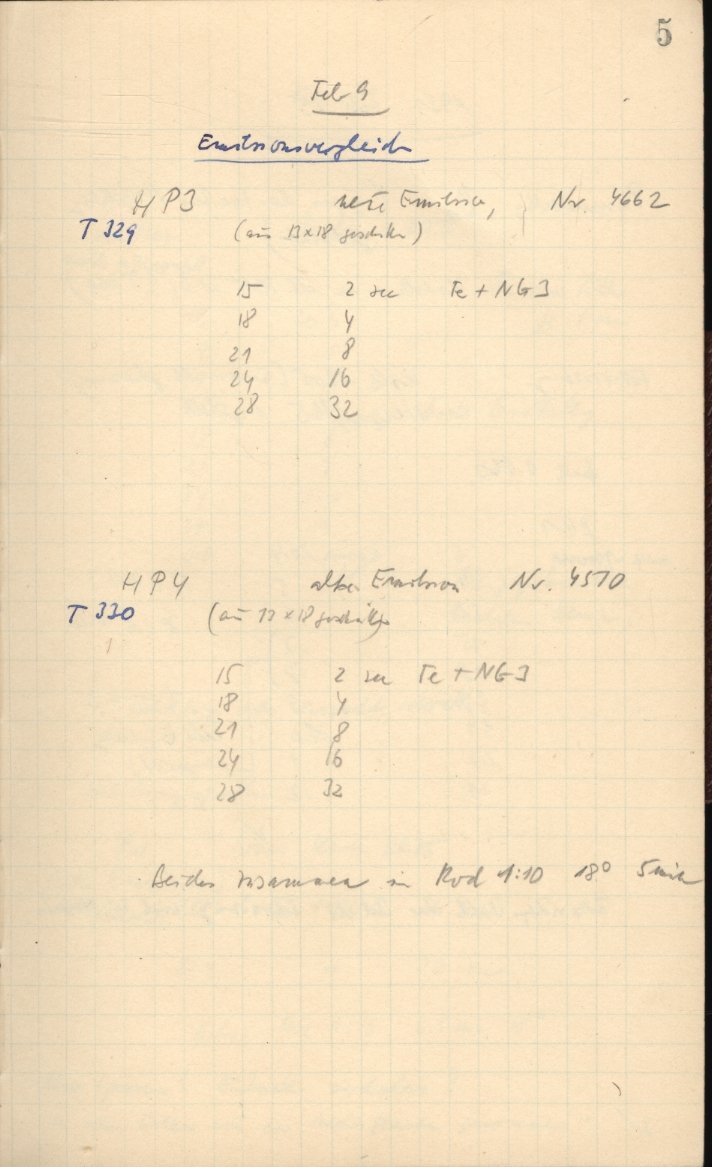 5
Feb 9
Emulsionsvergleich
HP3 neue Emulsion, Nr. 4662
T 329 (aus 13x18 geschnitten)
15 2 sec Te + NG3
18 4
21 8
24 16
28 32
HP4 alte Emulsion Nr. 4570
T 330 (aus 13x18 geschnitten)
15 2 sec Te + NG3
18 4
21 8
24 16
28 32
Beides zusammen in Rod 1:10 18° 5 min